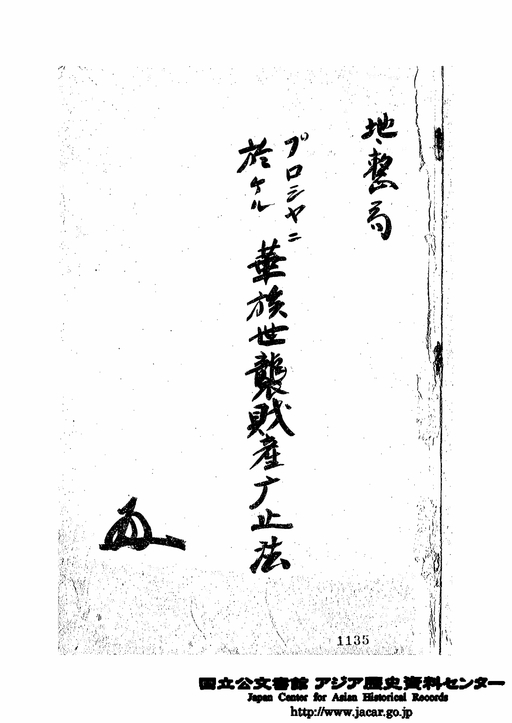 地、整局
プロシヤニ
於ケル
華族世襲財産广止法
1135
国立公文書館 アジア歴史資料センター
Japan Center for Asian Historical Records
http://www.jacar.go.jp